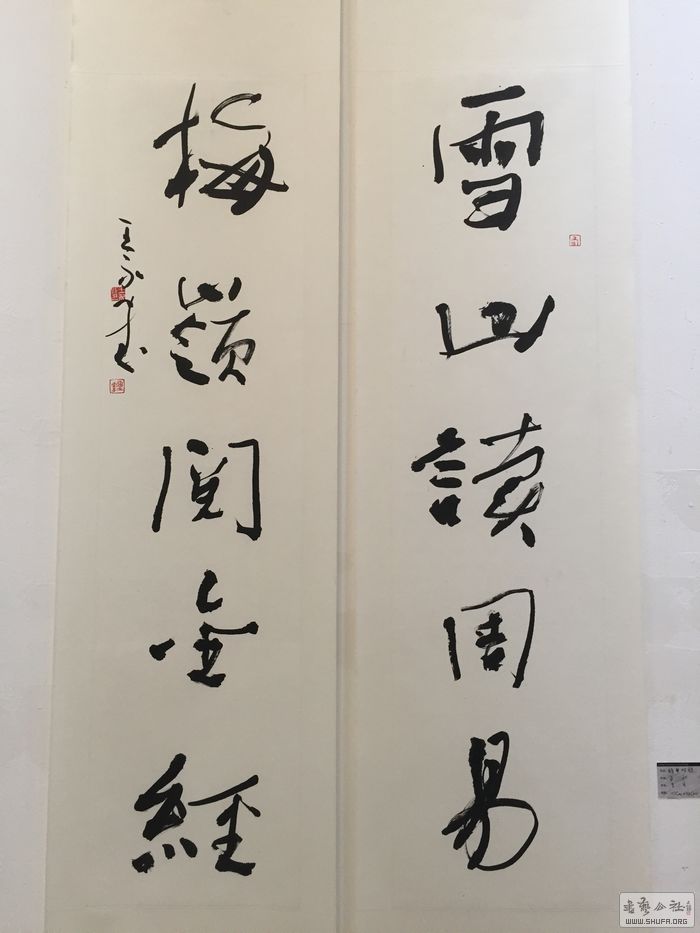 雪山讀周易
梅嶺閱金經
書藝公社
WWW.SHUFA.ORG